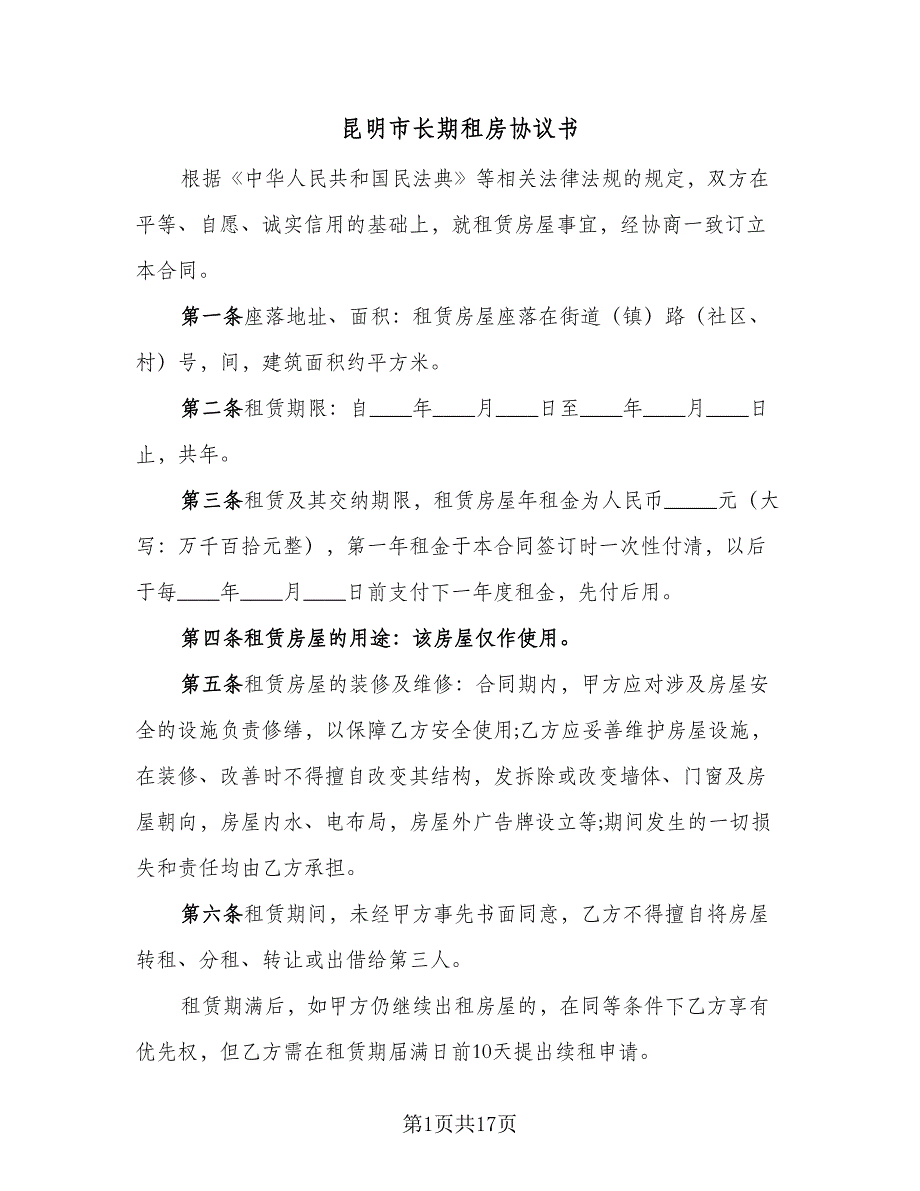 昆明市长期租房协议书
根据《中华人民共和国民法典》等相关法律法规的规定，双方在
平等、自愿、诚实信用的基础上，就租赁房屋事宜，经协商一致订立
本合同。
第一条座落地址、面积：租赁房屋座落在街道（镇）路（社区、
村）号，间，建筑面积约平方米。
第二条租赁期限：自____年____月____日至____年____月____日
止，共年。
第三条租赁及其交纳期限，租赁房屋年租金为人民币_____元（大
写：万千百拾元整），第一年租金于本合同签订时一次性付清，以后
于每____年____月____日前支付下一年度租金，先付后用。
第四条租赁房屋的用途：该房屋仅作使用。
第五条租赁房屋的装修及维修：合同期内，甲方应对涉及房屋安
全的设施负责修缮，以保障乙方安全使用;乙方应妥善维护房屋设施，
在装修、改善时不得擅自改变其结构，发拆除或改变墙体、门窗及房
屋朝向，房屋内水、电布局，房屋外广告牌设立等;期间发生的一切损
失和责任均由乙方承担。
第六条租赁期间，未经甲方事先书面同意，乙方不得擅自将房屋
转租、分租、转让或出借给第三人。
租赁期满后，如甲方仍继续出租房屋的，在同等条件下乙方享有
优先权，但乙方需在租赁期届满日前10天提出续租申请。
第1页共17页